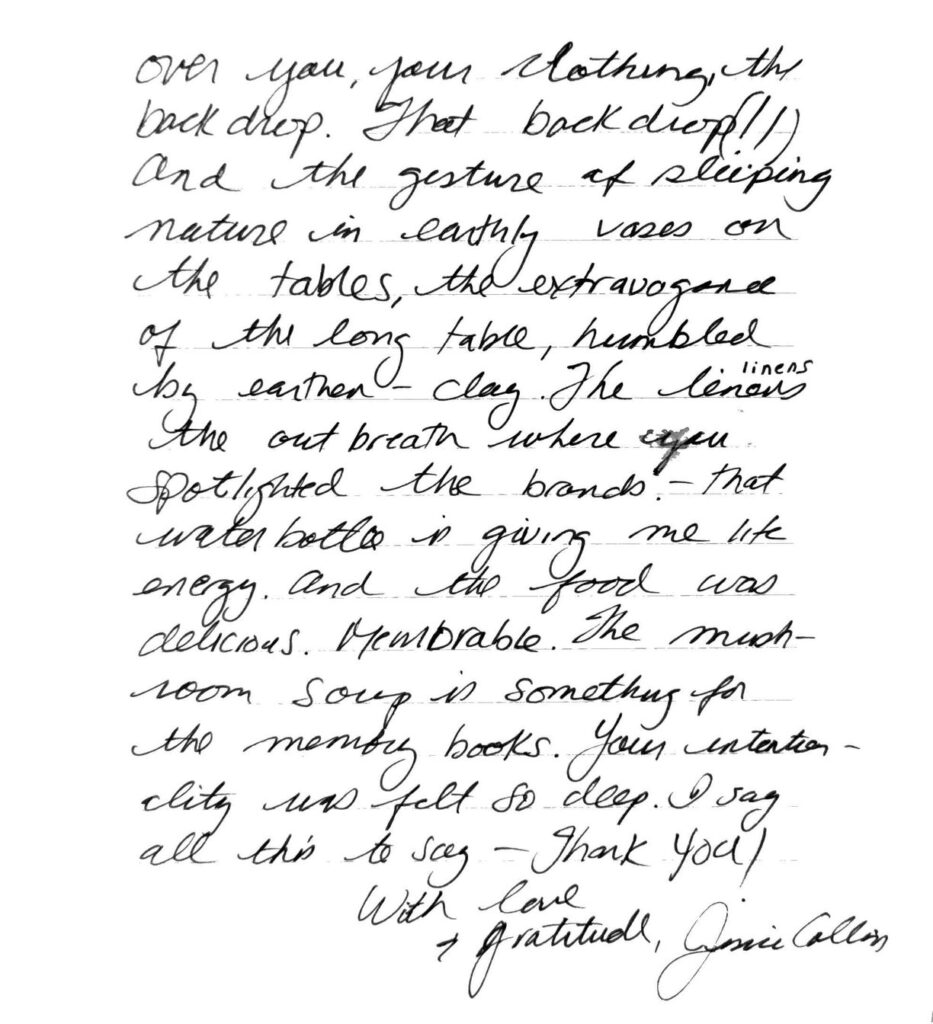 over you, your clothing, the
backdrop. That backdrop(!!)
And the gesture of sleeping
nature in earthly vases on
the tables, the extravagance
of the long table, humbled
by earthen - clay. The linens linens
the out breath where you
spotlighted the brands. - that
water bottle is giving me life
energy. And the food was
delicious. Memorable. The mush-
room soup is something for
the memory books. Your intention-
ality was felt so deep. I say
all this to say - Thank You!
With love
+ gratitude, Collins